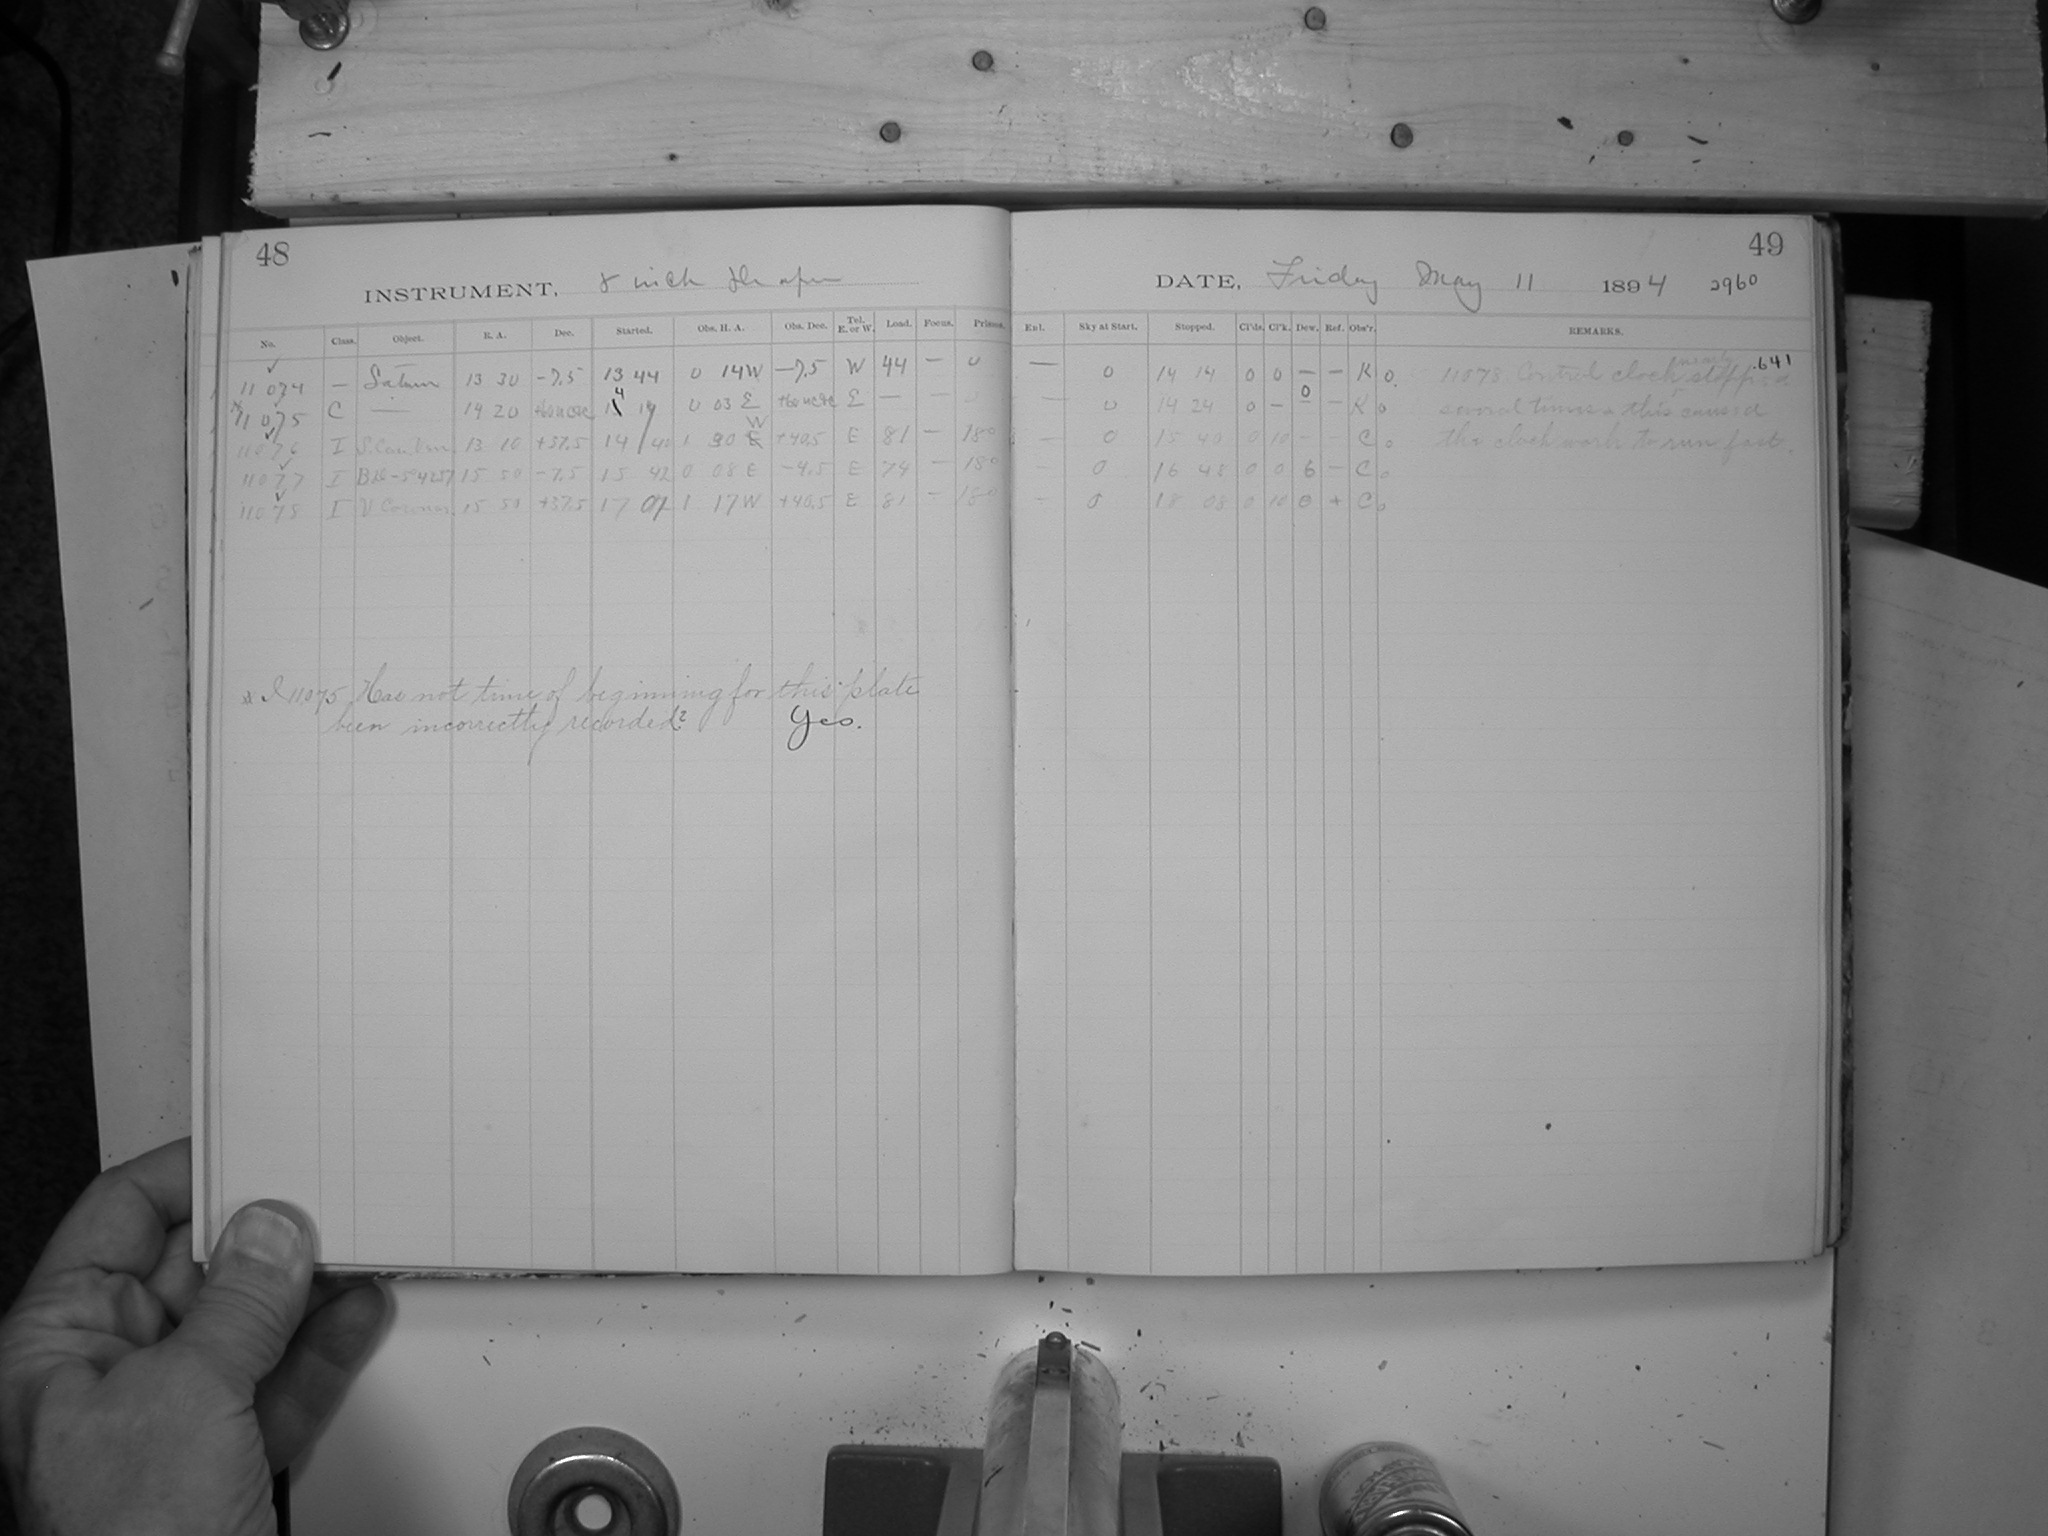 48
INSTRUMENT, 8 inch Draper
No. Class. Object. R. A. Dec. Started. Obs. H. A. Obs. Dec. Tel. E. or W. Load. Focus. Prisms.
11074 — Saturn 13 30 -7.5 13 44 0 14W -7.5 W 44 — 0
*11075 C — 14 20 14 19 0 03 E E — —
11076 I 13 10 +37.5 14 40 1 30 W +40.5 E 81 — 180
11077 I 15 50 -7.5 15 42 0 08 E -4.5 E 74 — 180
11078 I V Coronae 15 50 +37.5 17 07 1 17W +40.5 E 81 — 180
* I 11075 Has not time of beginning for this plate
been incorrectly recorded? Yes.
49
DATE, Friday May 11 1894 2960
Enl. Sky at Start. Stopped. Cl'ds. Cl'k. Dew. Ref. Obs'r. REMARKS.
— 0 14 14 0 0 — — K 0. 11078 Control clock nearly stopped .641
— 0 14 24 0 — 0 — K 0 several times & this caused
— 0 15 40 0 10 — — C 0 the clock work to run fast.
— 0 16 48 0 0 6 — C 0
— 0 18 08 0 10 0 + C 0